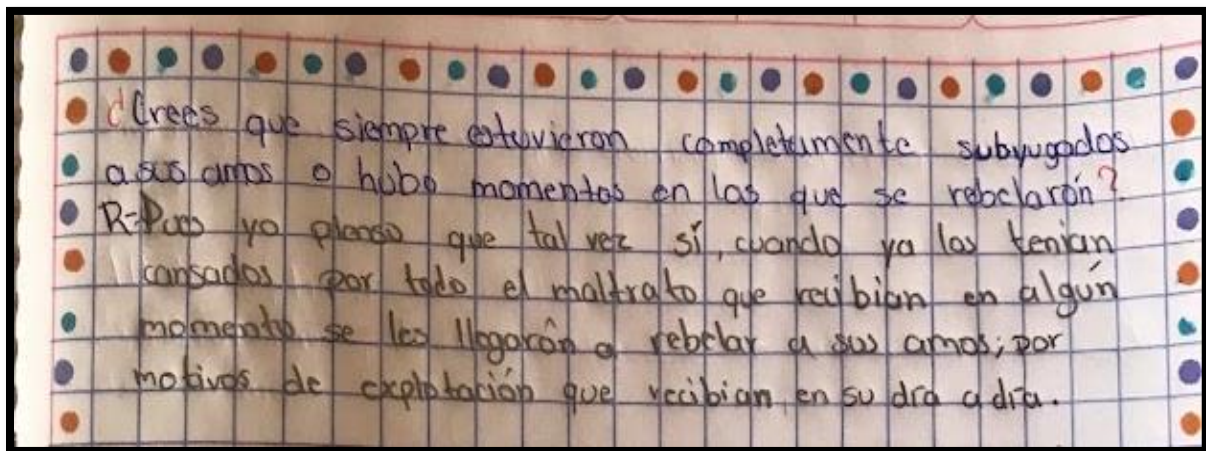 ¿Crees que siempre estuvieron completamente subyugados
a sus amos o hubo momentos en los que se rebelarón?
R-Pues yo pienso que tal vez sí, cuando ya los tenian
cansados por todo el maltrato que recibian en algún
momento se les llegarón a rebelar a sus amos; por
motivos de explotación que recibian en su día a día.